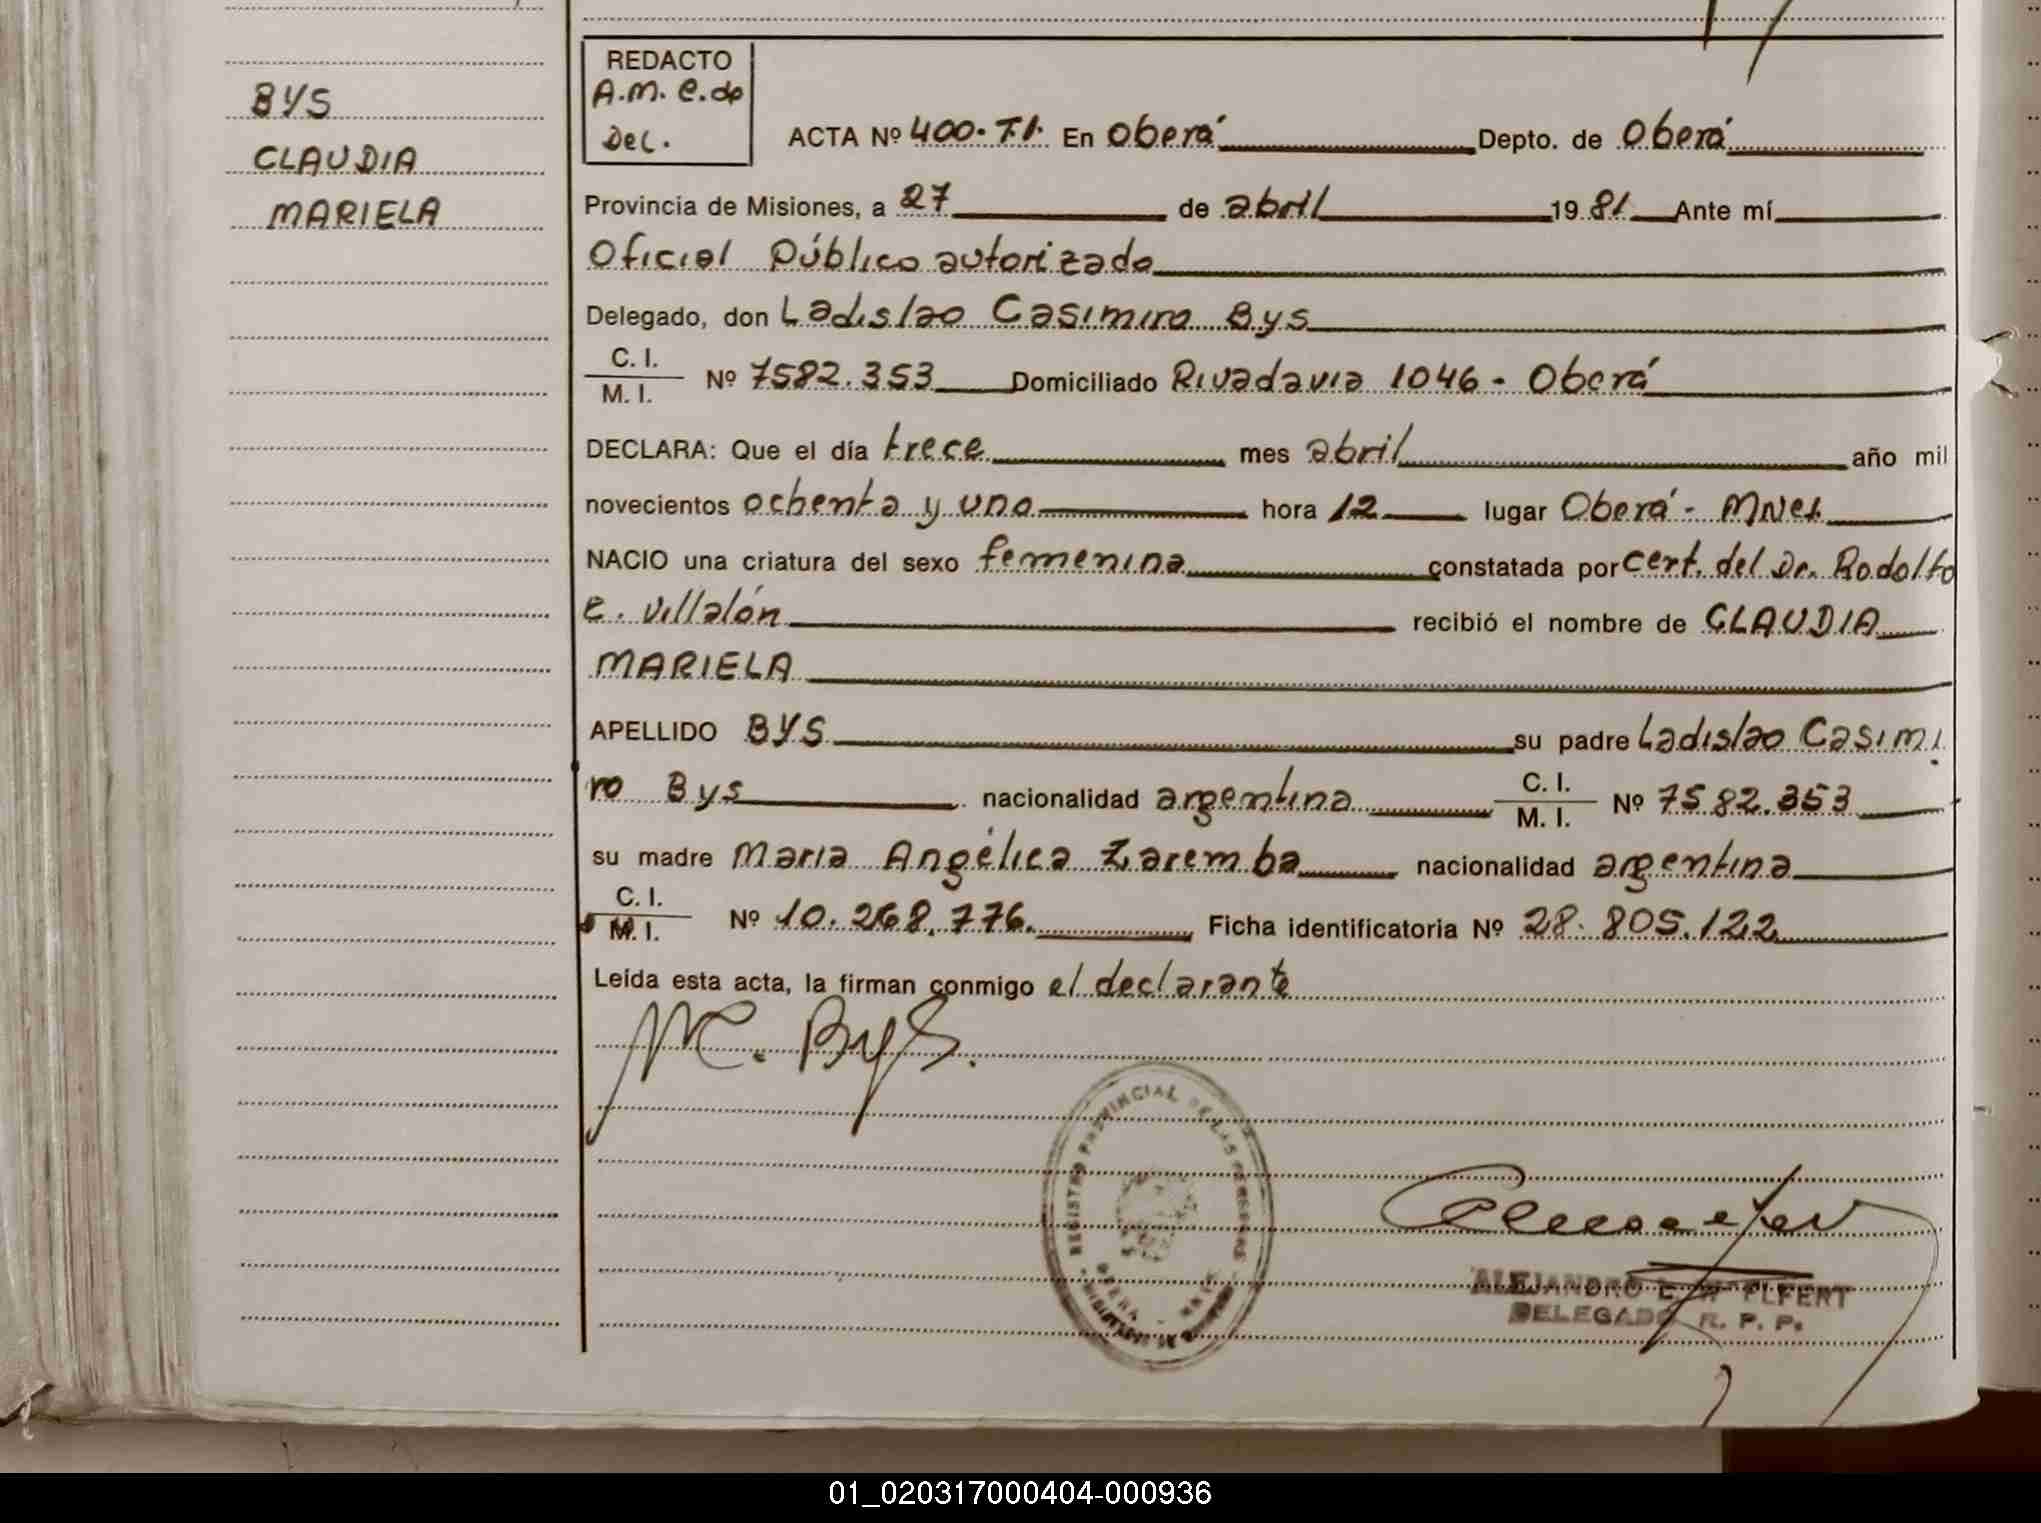 BYS
CLAUDIA
MARIELA
REDACTO
A.M. C. de
Del.
ACTA Nº 400. T.I. En Oberá Depto. de Oberá
Provincia de Misiones, a 27 de abril 1981 Ante mí
Oficial Público autorizado
Delegado, don Ladislao Casimiro Bys
C. I.
M. I. Nº 7582.353 Domiciliado Rivadavia 1046 - Oberá
DECLARA: Que el día trece mes abril año mil
novecientos ochenta y uno hora 12 lugar Oberá - Mnes
NACIO una criatura del sexo femenina constatada por cert. del Dr. Rodolfo
E. Villalón recibió el nombre de CLAUDIA
MARIELA
APELLIDO BYS su padre Ladislao Casimi
ro Bys nacionalidad argentina C. I. M. I. Nº 7582.353
su madre Maria Angélica Zaremba nacionalidad argentina
C. I.
M. I. Nº 10.268.776. Ficha identificatoria Nº 28.805.122
Leída esta acta, la firman conmigo el declarante
Bys.
REGISTRO PROVINCIAL DE LAS PERSONAS
OBERA
ALEJANDRO E.
DELEGADO R. P. P.
01_020317000404-000936